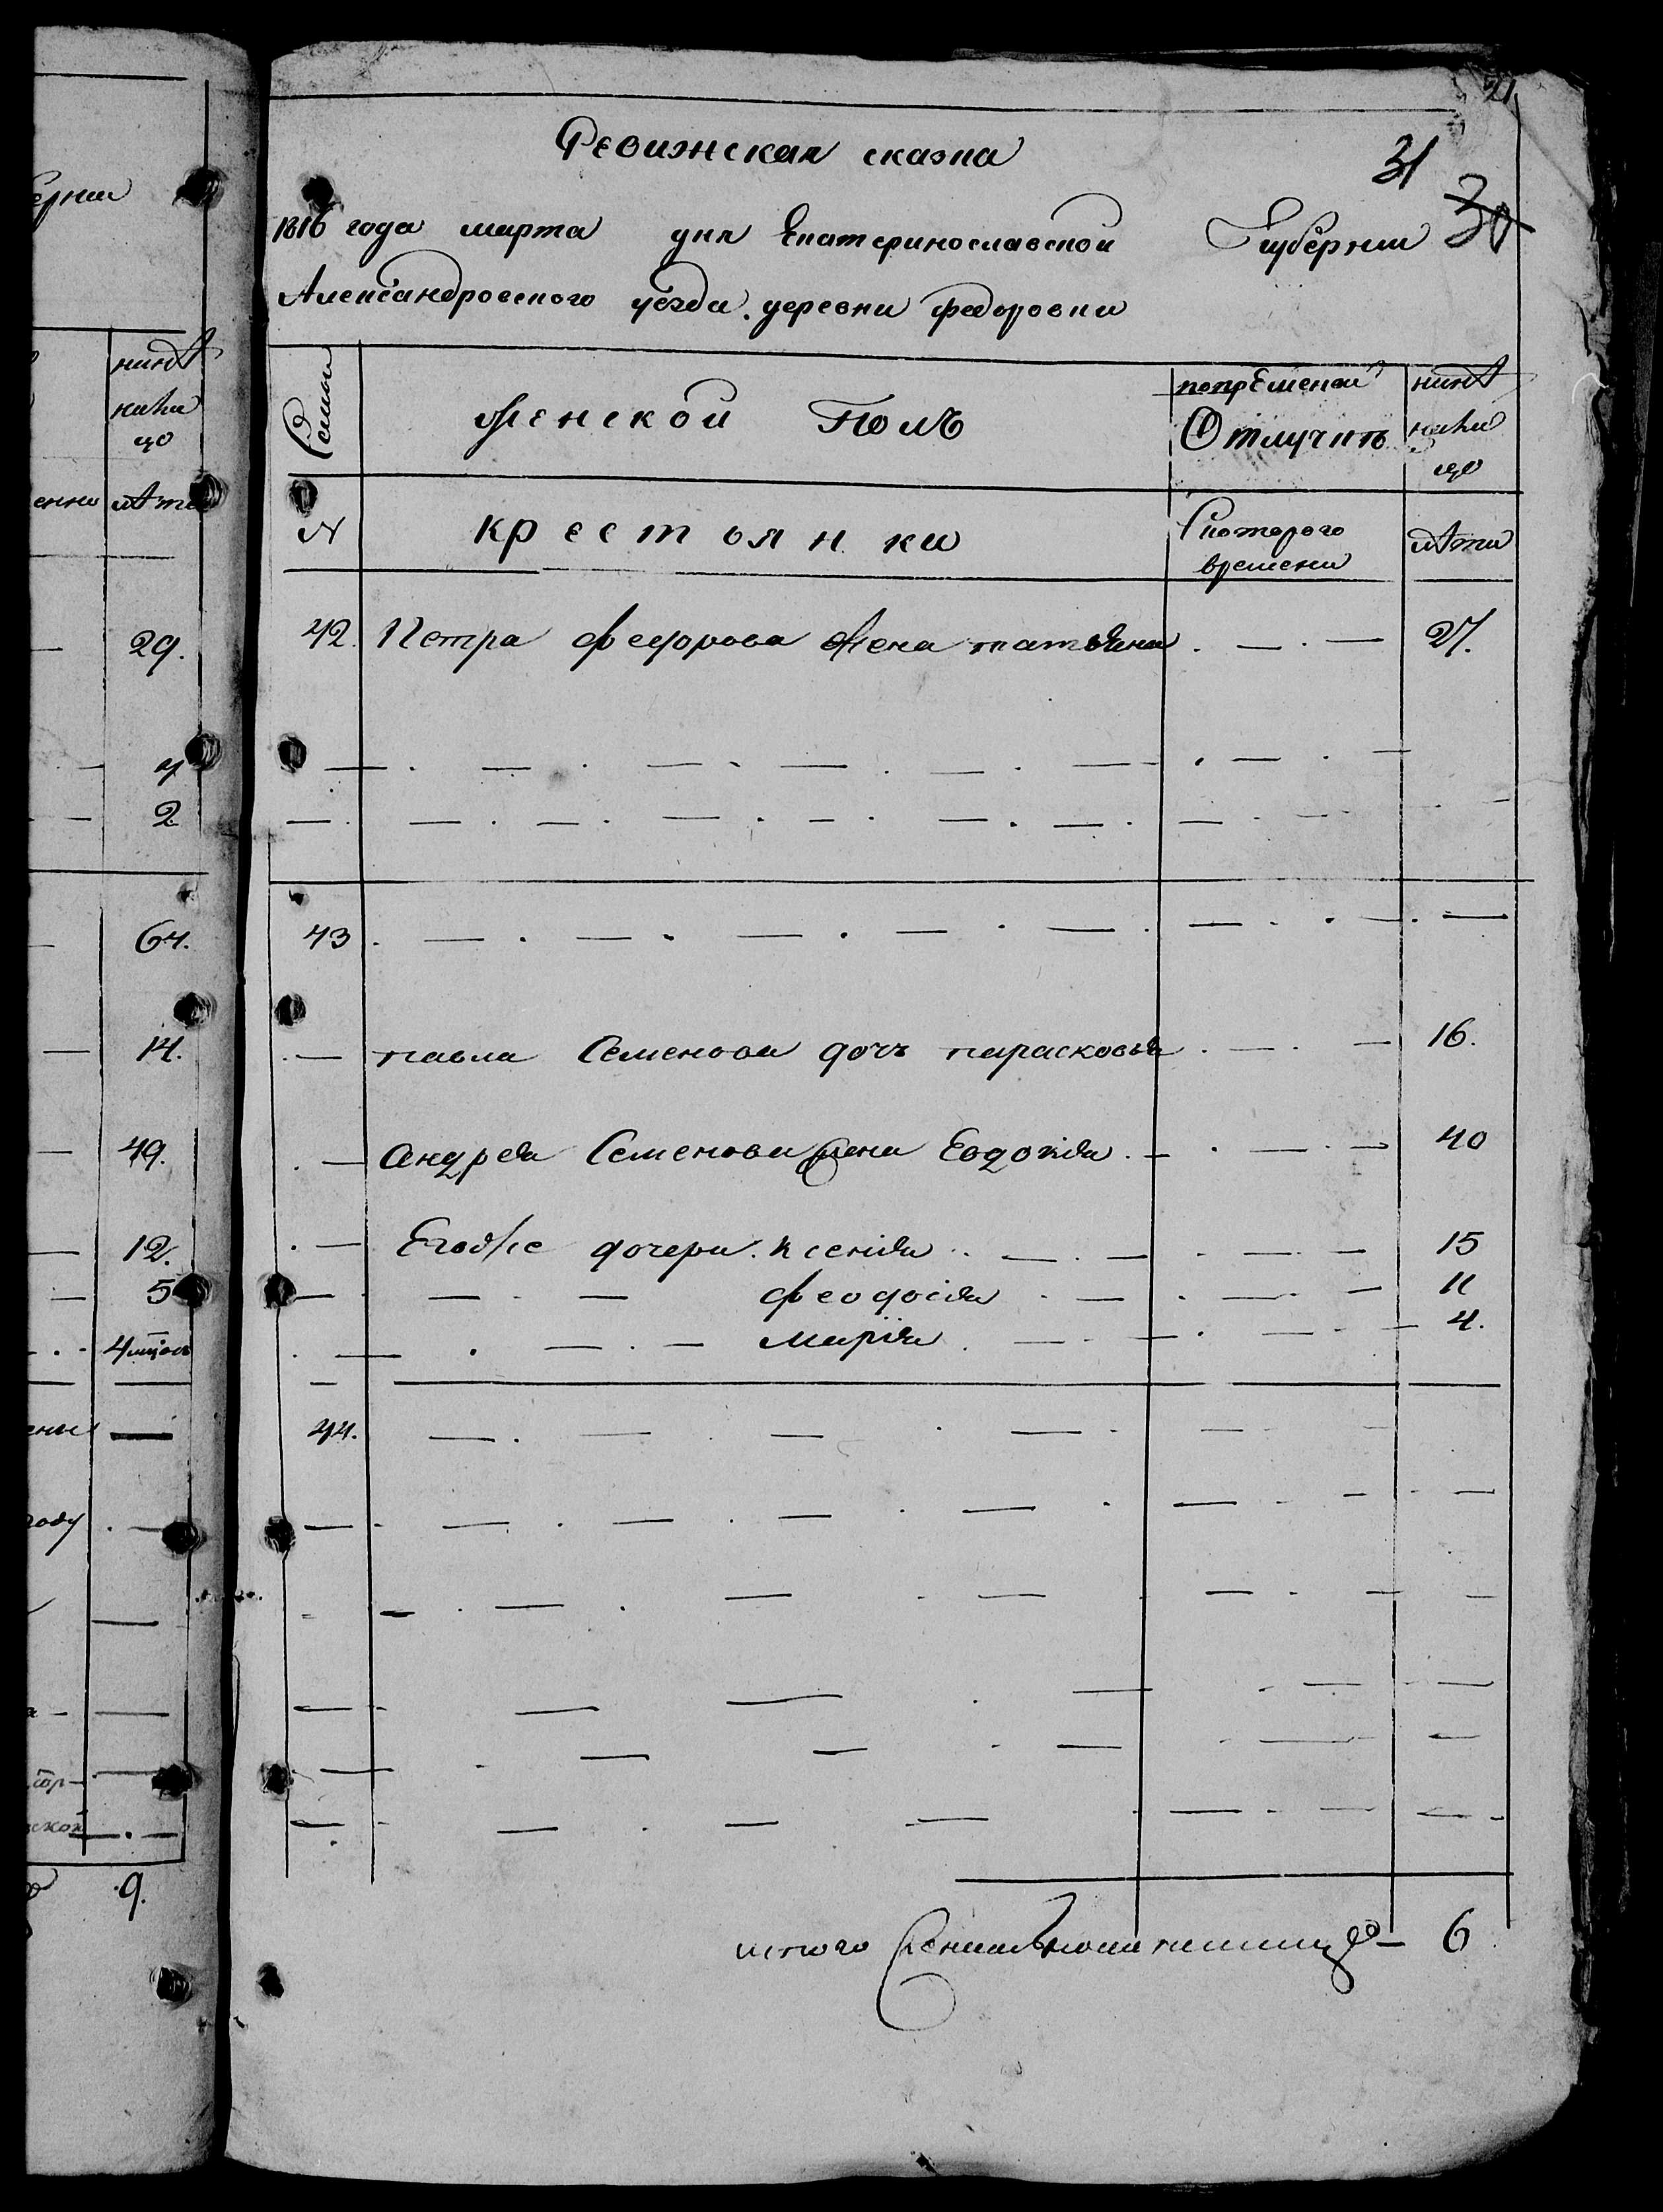 21
Ревижская сказка
31
30
1816 года марта дня Екатеринославской Губернии
Александровского уезда. деревни федоровки
Семьи
женской Полъ
Отлучкѣ
нинѣ
N
крестьянки
С котораго
времени
лѣта
42. Петра федорова жена татьяна . — . — 27.
43
павла Семенова дочъ парасковья . — . — 16.
Андрея Семенова жена Евдокія . — . — 40
Егожъ дочери. ксенія . . — . — 15
феодосія . — . — 11
марія . — . — 4.
44.
итого женска пола на лицо — 6
ернии
нинѣ
лѣта
29.
4
2
64.
14.
49.
12.
5
году
9.